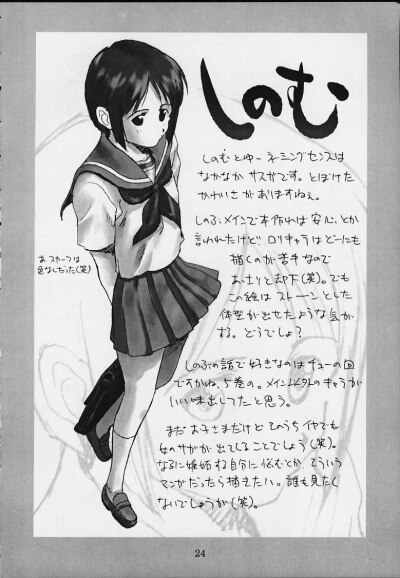 しのむ
しのむとゆーネーミングセンスは
なかなかサスガです。とぼけた
かわいさがありますねぇ。
しのぶメインで本作れば安心、とか
言われたけど ロリキャラはどーにも
描くのが苦手なので
あっさりと却下(笑)。でも
この絵はストーンとした
体型が出せたような気が
する。どうでしょ?
あ、スカーフは
色なしだった(笑)
しのぶの話で好きなのはチューの回
ですかね、5巻の。メイン以外のキャラが
いい味出してたと思う。
まだお子さまだけど そのうちイヤでも
女のサガが出てくることでしょう(笑)。
なるに嫉妬する自分に悩むとか、そういう
マンガだったら描きたい。誰も見たく
ないでしょうが(笑)。
24